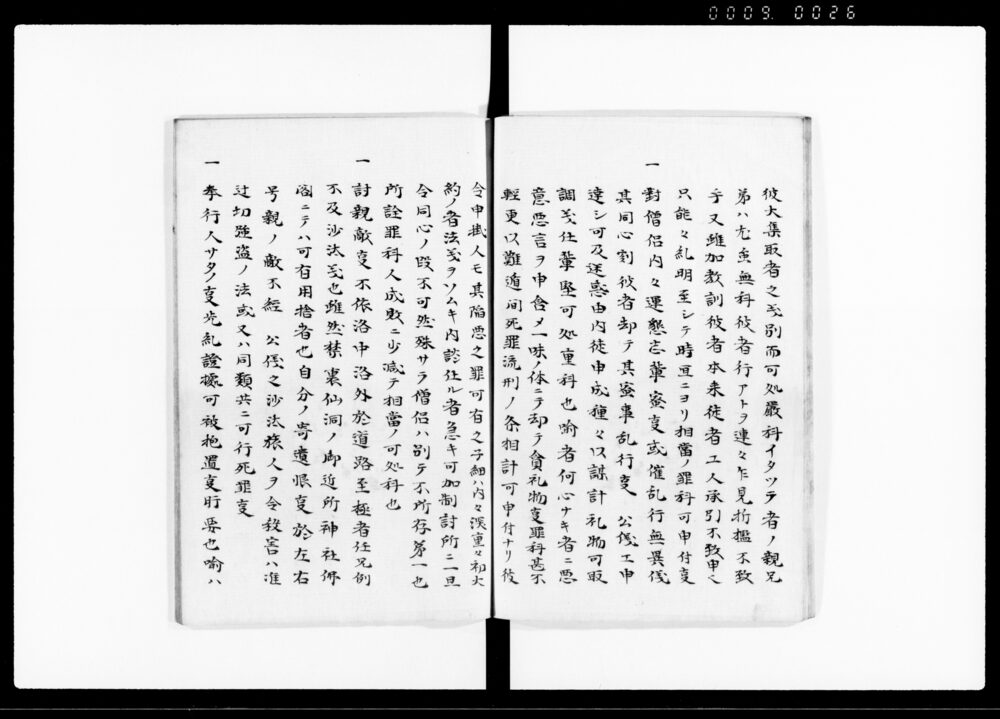 0009. 0026
彼大集取者之義別而可処嚴科イタツラ者ノ親兄
弟ハ尤重無科彼者行アトヲ連々乍見折檻不致
于又雖加教訓彼者本来徒者エ人承引不致申ハ
只能々糺明至シテ時宜ニヨリ相當ノ罪科可申付叓
一 對僧侶内々運懇志輩蜜叓或催乱行無異儀
其同心割彼者却テ其蜜事乱行叓 公儀エ申
達シ可及迷惑由内徒申成種々以謀計礼物可取
調義仕輩堅可処重科也喻者何心ナキ者ニ悪
意悪言ヲ申含メ一味ノ体ニテ却テ貪礼物叓罪科甚不
輕更以難遁間死罪流刑ノ条相計可申付ナリ彼
令申掛人モ其陥悪之罪可有之子細ハ内々深重々初大
約ノ者法義ヲソムキ内談仕ル者急キ可加制討所ニ一旦
令同心ノ段不可然殊サラ僧侶ハ別テ不所存第一也
所詮罪科人成敗ニ少減テ相當ノ可処科也
一 討親敵叓不依洛中洛外於道路至極者任先例
不及沙汰義也雖然禁裏仙洞ノ御近所神社佛
閣ニテハ可有用捨者也自分ノ寄遺恨叓於左右
号親ノ敵不経 公儀之沙法旅人ヲ令殺害ハ准
辻切強盗ノ法或又ハ同類共ニ可行死罪叓
一 奉行人サタノ叓先糺證據可被抱置叓肝要也喻ハ